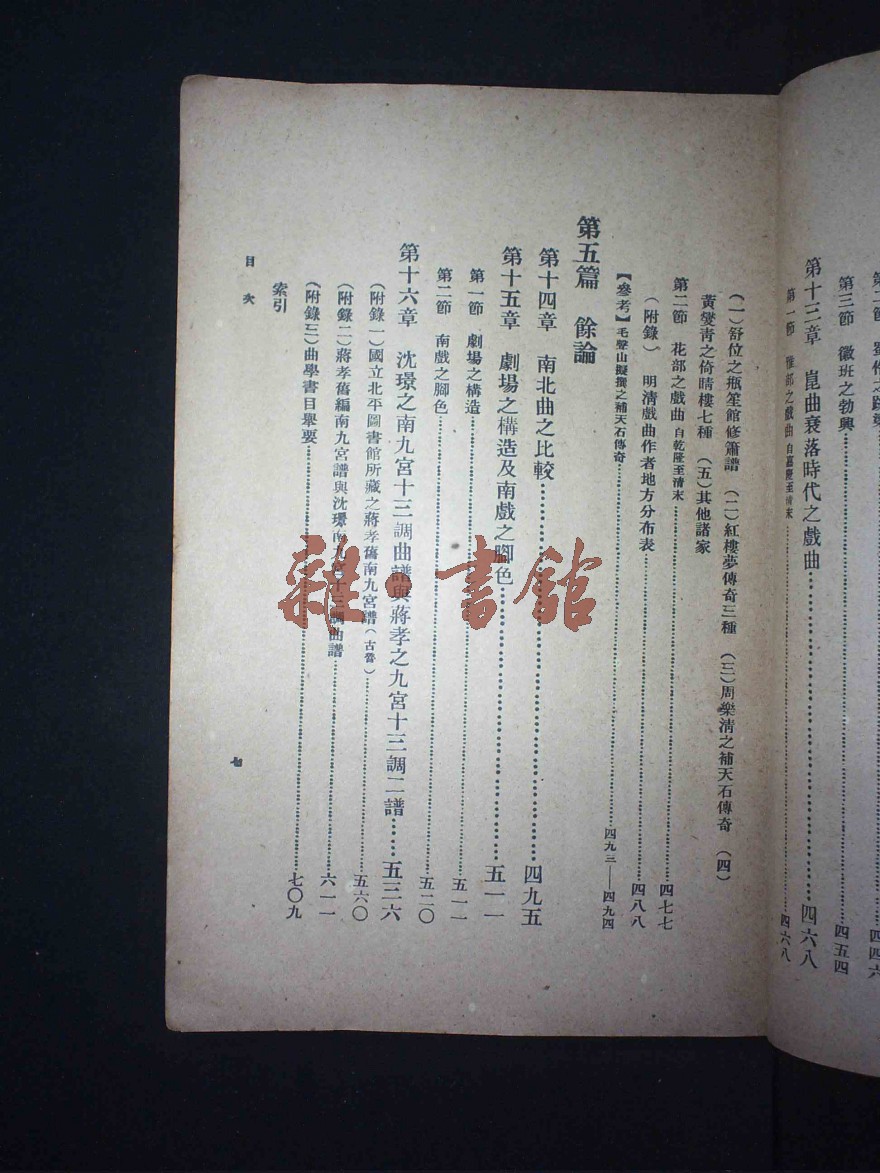 第三節　徽班之勃興……四五四
第十三章　崑曲衰落時代之戲曲……四六八
第一節　雅部之戲曲 自嘉慶至清末……四六八
(一)舒位之瓶笙館修簫譜　(二)紅樓夢傳奇三種　(三)周樂清之補天石傳奇　(四)
黃燮清之倚晴樓七種　(五)其他諸家
第二節　花部之戲曲 自乾隆至清末……四七七
(附錄)　明清戲曲作者地方分布表……四八八
【參考】毛聲山擬撰之補天石傳奇……四九三——四九四
第五篇　餘論
第十四章　南北曲之比較……四九五
第十五章　劇場之構造及南戲之腳色……五一一
第一節　劇場之構造……五一一
第二節　南戲之腳色……五二〇
第十六章　沈璟之南九宮十三調曲譜與蔣孝之九宮十三調二譜……五三六
(附錄一)國立北平圖書館所藏之蔣孝舊南九宮譜(古魯)……五六〇
(附錄二)蔣孝舊編南九宮譜與沈璟南九宮十三調曲譜……六一一
(附錄三)曲學書目舉要……七〇九
索引
目次
七
雜·書館